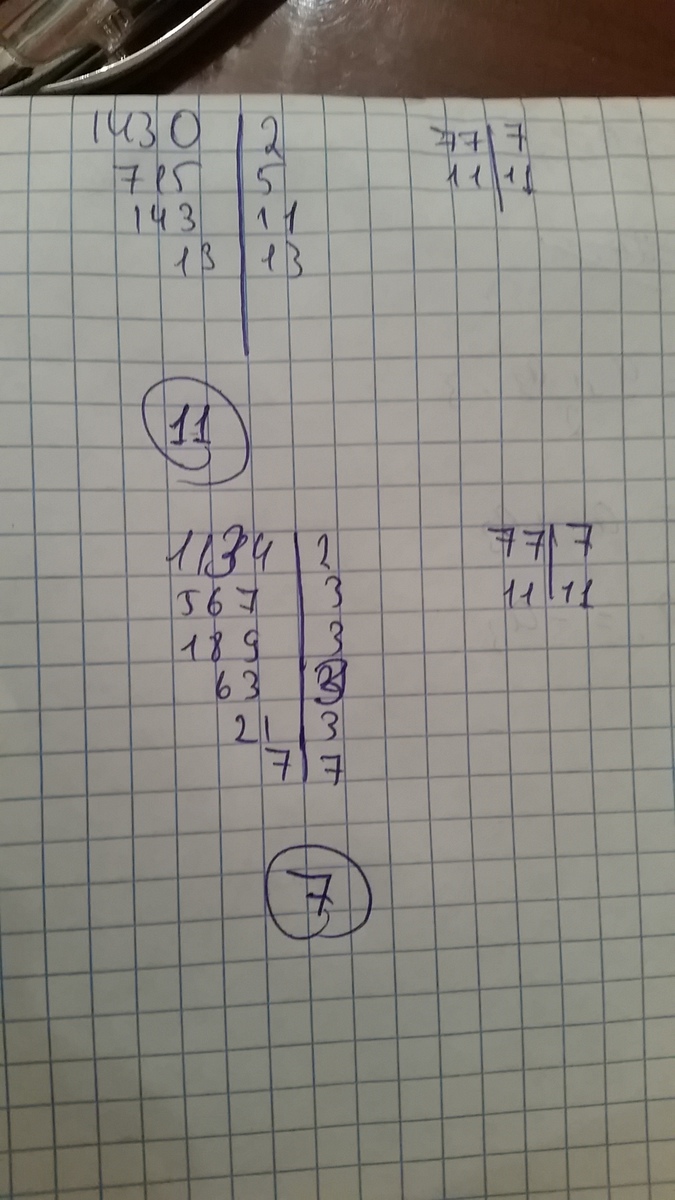 1430 | 2
715 | 5
143 | 11
13 | 13
77 | 7
11 | 11
11
1134 | 2
567 | 3
189 | 3
63 | 3
21 | 3
7 | 7
77 | 7
11 | 11
7